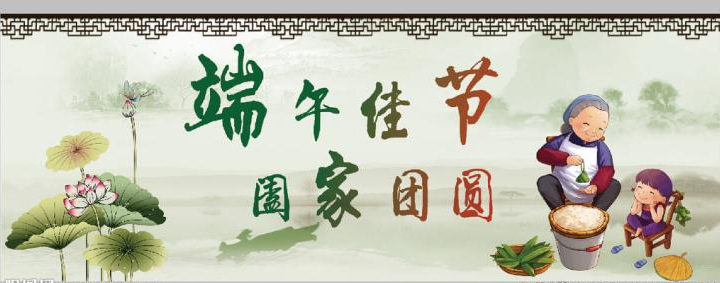 端午佳节
阖家团圆